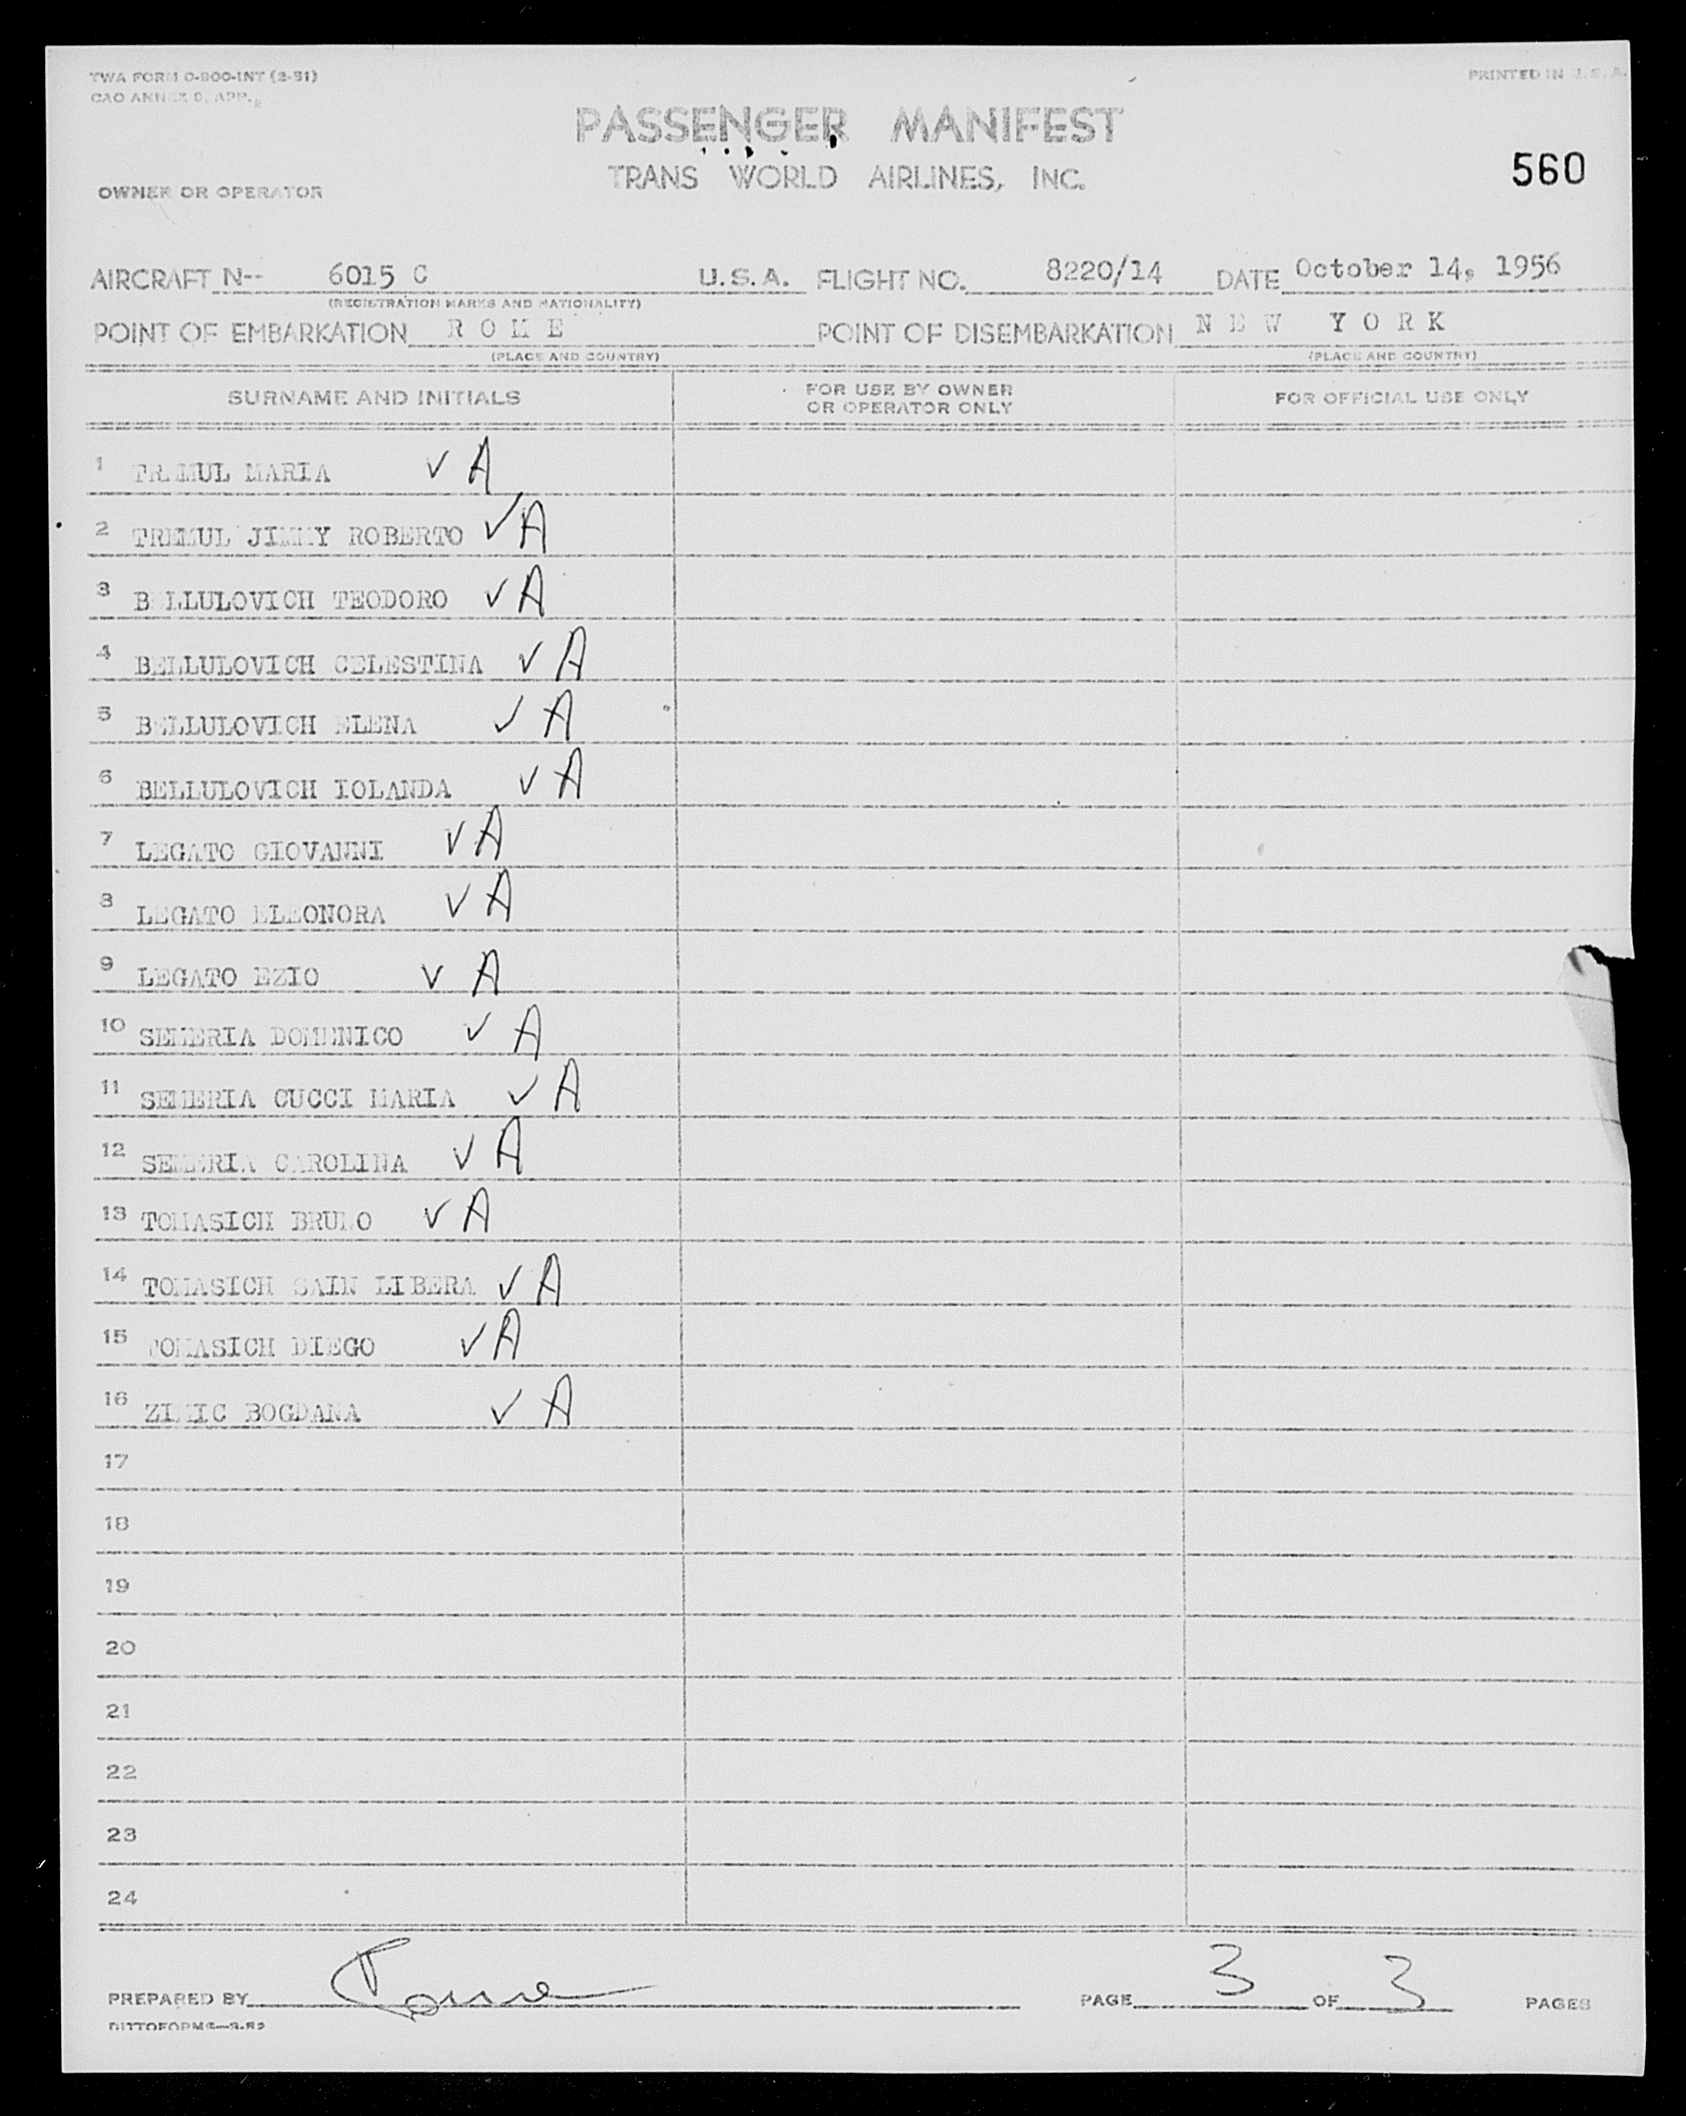 TWA FORM O-800-INT (2-51)
PRINTED IN U.S.A.
CAO ANNEX 9, APP.
PASSENGER MANIFEST
TRANS WORLD AIRLINES, INC.
560
OWNER OR OPERATOR
AIRCRAFT N-- 6015 C U.S.A. FLIGHT NO. 8220/14 DATE October 14, 1956
(REGISTRATION MARKS AND NATIONALITY)
POINT OF EMBARKATION R O M E POINT OF DISEMBARKATION N E W Y O R K
(PLACE AND COUNTRY) (PLACE AND COUNTRY)
SURNAME AND INITIALS
FOR USE BY OWNER
OR OPERATOR ONLY
FOR OFFICIAL USE ONLY
1 TREMUL MARIA ✓ A
2 TREMUL JIMMY ROBERTO ✓ A
3 BELLULOVICH TEODORO ✓ A
4 BELLULOVICH CELESTINA ✓ A
5 BELLULOVICH ELENA ✓ A
6 BELLULOVICH IOLANDA ✓ A
7 LEGATO GIOVANNI ✓ A
8 LEGATO ELEONORA ✓ A
9 LEGATO EZIO ✓ A
10 SEMERIA DOMENICO ✓ A
11 SEMERIA CUCCI MARIA ✓ A
12 SEMERIA CAROLINA ✓ A
13 TOMASICH BRUNO ✓ A
14 TOMASICH SAIN LIBERA ✓ A
15 TOMASICH DIEGO ✓ A
16 ZIMIC BOGDANA ✓ A
17
18
19
20
21
22
23
24
PREPARED BY PAGE 3 OF 3 PAGES
DITTOFORMS—9-52